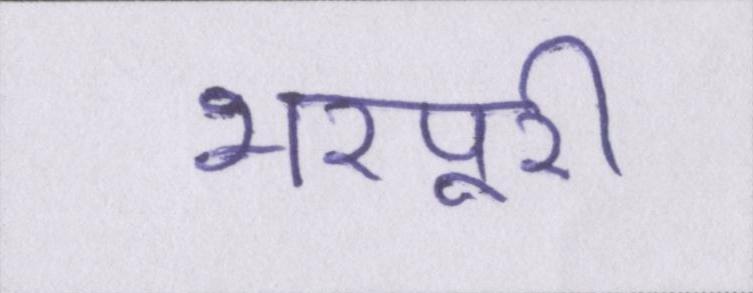 भरपूरी